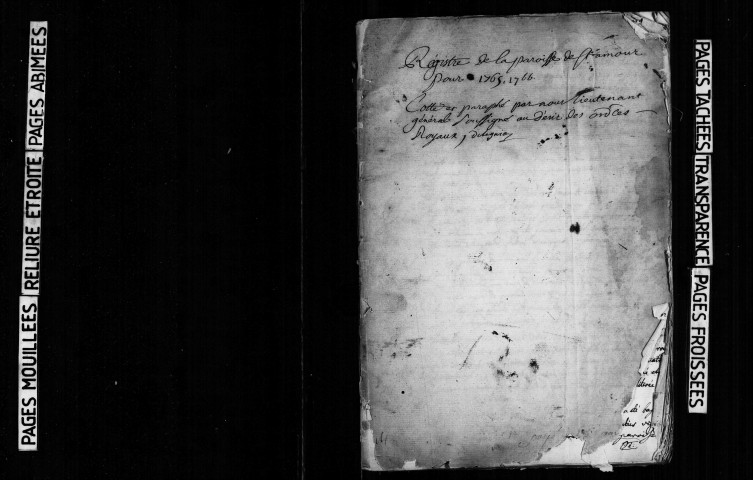 PAGES MOUILLEES RELIURE ETROITE PAGES ABIMEES
Registre de la paroisse de St amour
pour 1765, 1766
Cotté et paraphé par nous lieutenant
général soussigné au desir des ordces
Royaux
PAGES TACHEES TRANSPARENCE PAGES FROISSEES